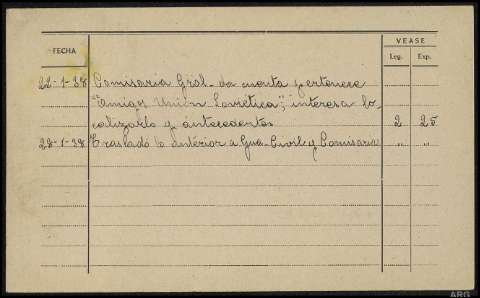 VEASE
FECHA Leg. Exp.
22-1-38 Comisaria Gral. da cuenta pertenece
"Amigos Unión Sovietica", interesa lo-
calizarlo y antecedentes 2 25
28-1-38 Traslado lo anterior a Gua. Civil y Comisaria " "
ARG